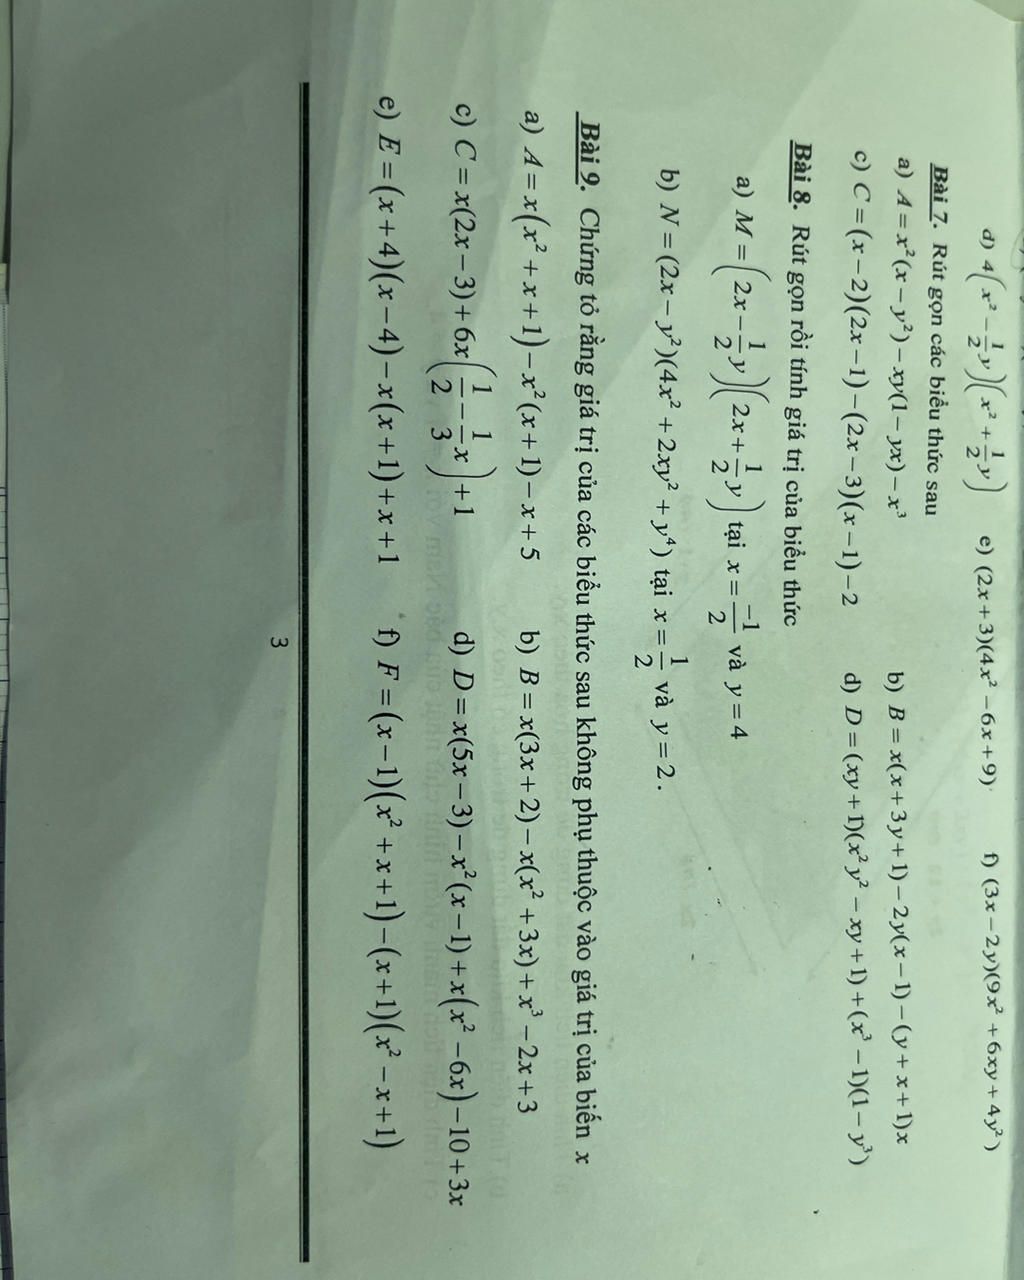 d) 4(x² − 1/2 y)(x² + 1/2 y) e) (2x+3)(4x² − 6x+9) f) (3x − 2y)(9x² + 6xy + 4y²)
Bài 7. Rút gọn các biểu thức sau
a) A = x²(x − y²) − xy(1 − yx) − x³ b) B = x(x + 3y + 1) − 2y(x − 1) − (y + x + 1)x
c) C = (x − 2)(2x − 1) − (2x − 3)(x − 1) − 2 d) D = (xy + 1)(x²y² − xy + 1) + (x³ − 1)(1 − y³)
Bài 8. Rút gọn rồi tính giá trị của biểu thức
a) M = (2x − 1/2 y)(2x + 1/2 y) tại x = −1/2 và y = 4
b) N = (2x − y²)(4x² + 2xy² + y⁴) tại x = 1/2 và y = 2.
Bài 9. Chứng tỏ rằng giá trị của các biểu thức sau không phụ thuộc vào giá trị của biến x
a) A = x(x² + x + 1) − x²(x + 1) − x + 5 b) B = x(3x + 2) − x(x² + 3x) + x³ − 2x + 3
c) C = x(2x − 3) + 6x(1/2 − 1/3 x) + 1 d) D = x(5x − 3) − x²(x − 1) + x(x² − 6x) − 10 + 3x
e) E = (x + 4)(x − 4) − x(x + 1) + x + 1 f) F = (x − 1)(x² + x + 1) − (x + 1)(x² − x + 1)
3